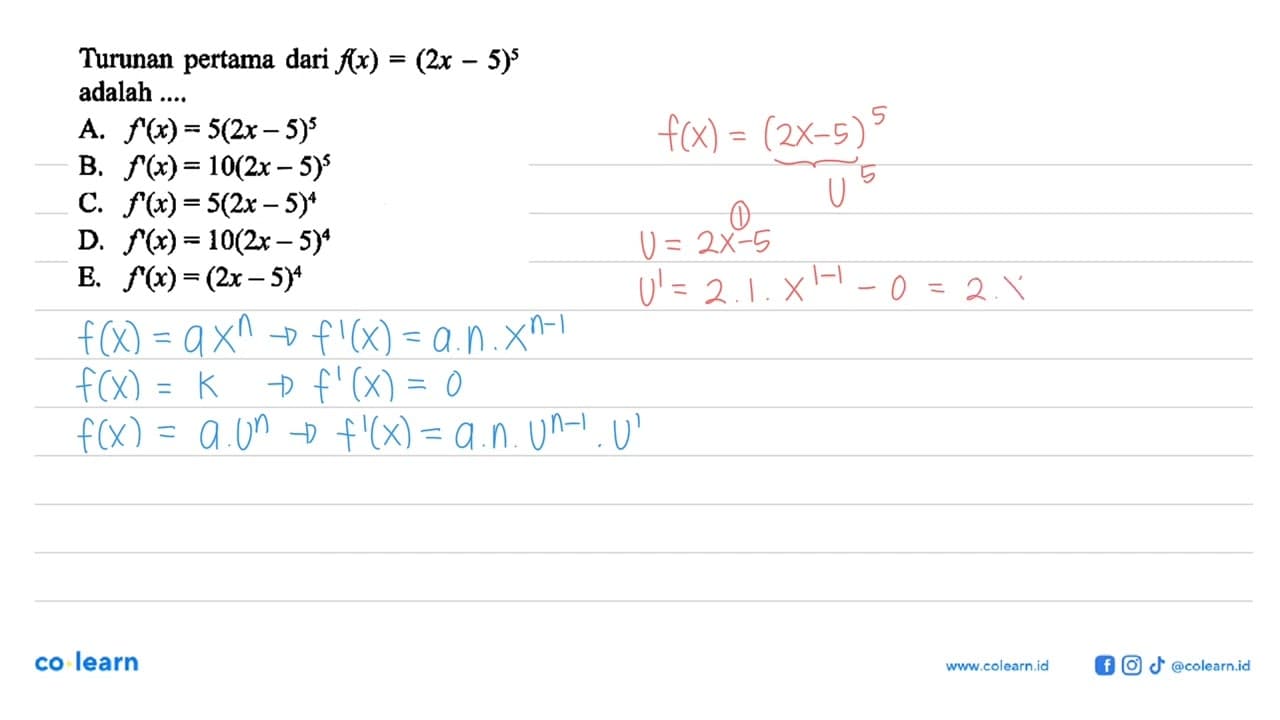 Turunan pertama dari f(x) = (2x – 5)⁵
adalah ....
A. f'(x) = 5(2x – 5)⁵
B. f'(x) = 10(2x – 5)⁵
C. f'(x) = 5(2x – 5)⁴
D. f'(x) = 10(2x – 5)⁴
E. f'(x) = (2x – 5)⁴
f(x) = (2x–5)⁵
U⁵
①
U = 2x–5
U' = 2.1.x¹⁻¹ – 0 = 2.
f(x) = axⁿ → f'(x) = a.n.xⁿ⁻¹
f(x) = k → f'(x) = 0
f(x) = a.Uⁿ → f'(x) = a.n.Uⁿ⁻¹.U'
co learn
www.colearn.id
@colearn.id